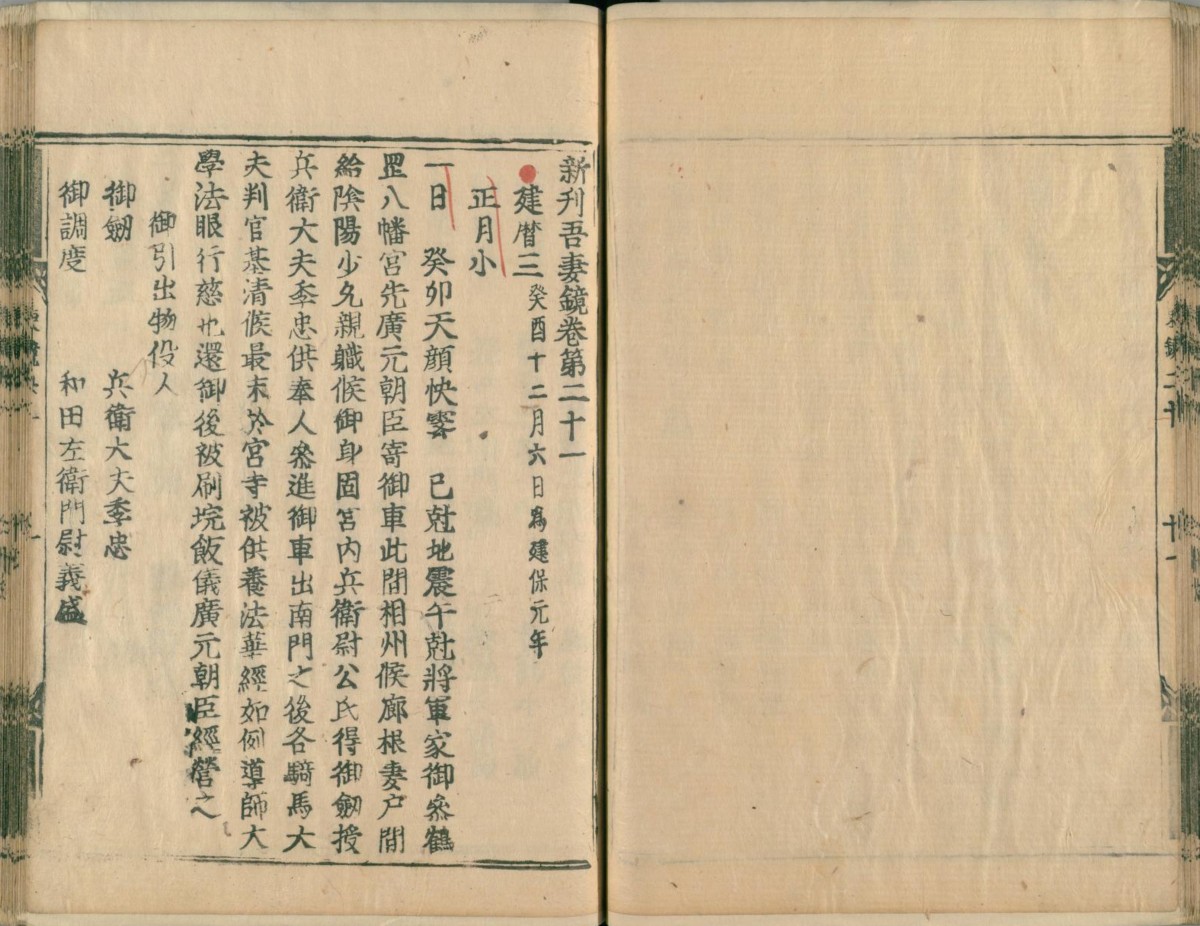 新刊吾妻鏡卷第二十一
建曆三癸酉十二月六日爲建保元年
正月小
一日 癸卯天顔快霽 已尅地震午尅將軍家御參鶴
罡八幡宮先廣元朝臣寄御車此間相州候廊根妻戸間
給陰陽少允親職候御身固宮内兵衛尉公氏得御劔授
兵衛大夫季忠供奉人參進御車出南門之後各騎馬大
夫判官基清候最末於宮寺被供養法華經如例導師大
學法眼行慈也還御後被刷垸飯儀廣元朝臣經營之
御引出物役人
御劔 兵衛大夫季忠
御調度 和田左衛門尉義盛